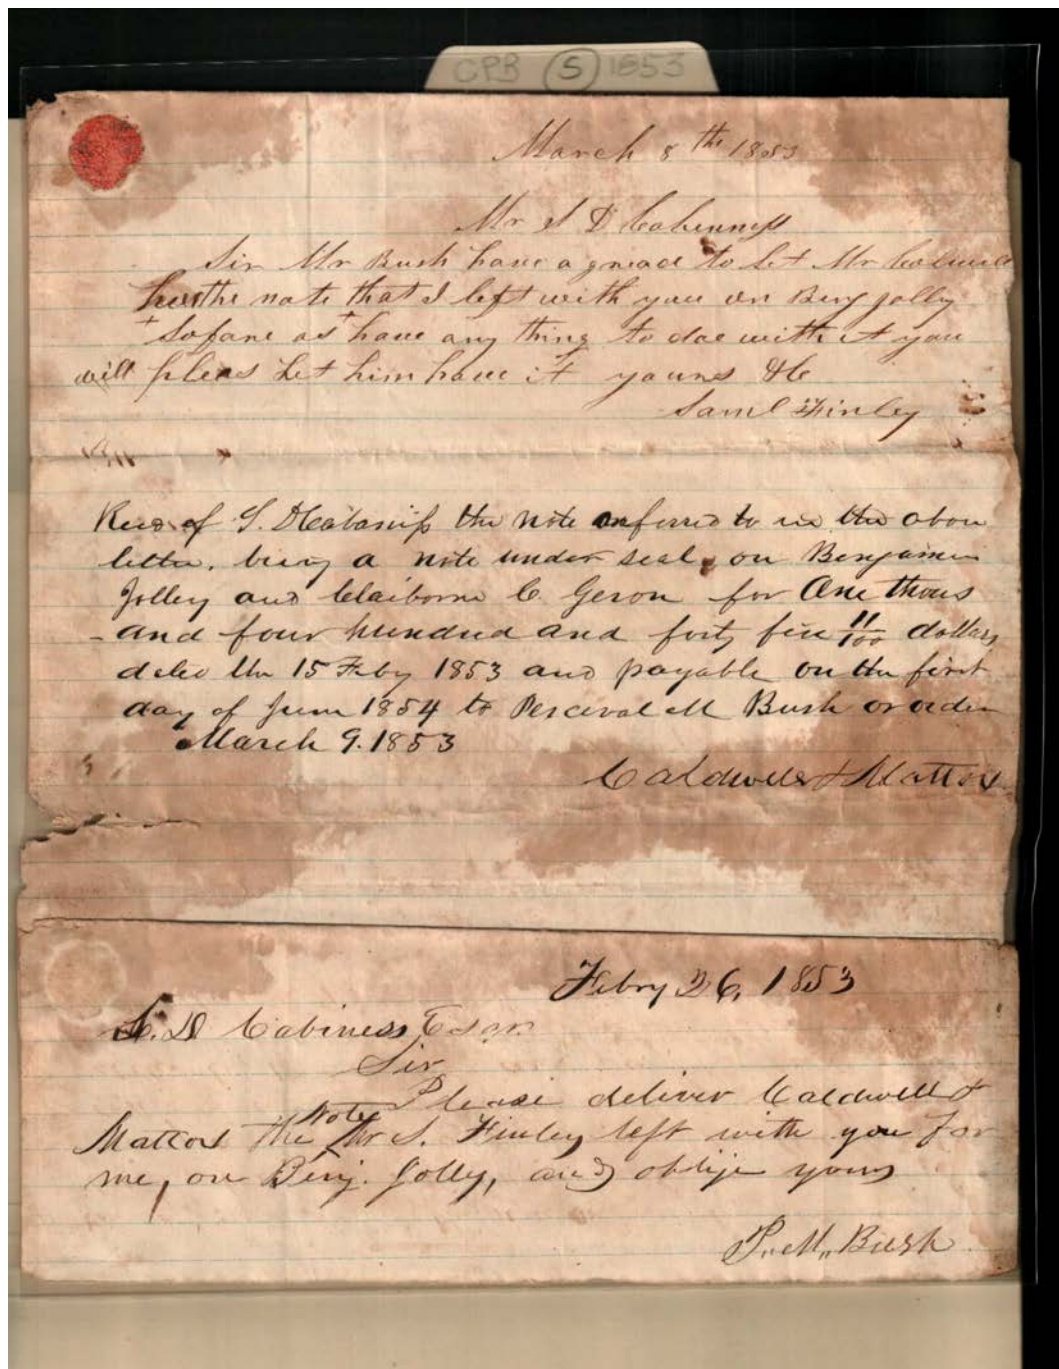 CPB S 1853
March 8th 1853
Mr S D Cabinness
Sir Mr Bush have a gread to let Mr
the note that I left with you on Binj Jolly
so fare as have any thing to doe with it you
will pleas let him have it yours &c
Saml Finley
Recd of S. D Cabaniss the note referred to in the above
letter, being a note under seal, on Benjamin
Jolley and Claiborne C. Geron for One thous
-and four hundred and forty five 11/100 dollars
dated the 15 Feby 1853 and payable on the first
day of June 1854 to Perceval M Bush or order
March 9. 1853
Caldwell & Mattox
Febry 26, 1853
S. D Cabiness Esqr.
Sir
Please deliver Caldwell &
Mattox the Note Mr S. Finley left with you for
me, on Binj. Jolly, and oblije yours
P. M. Bush